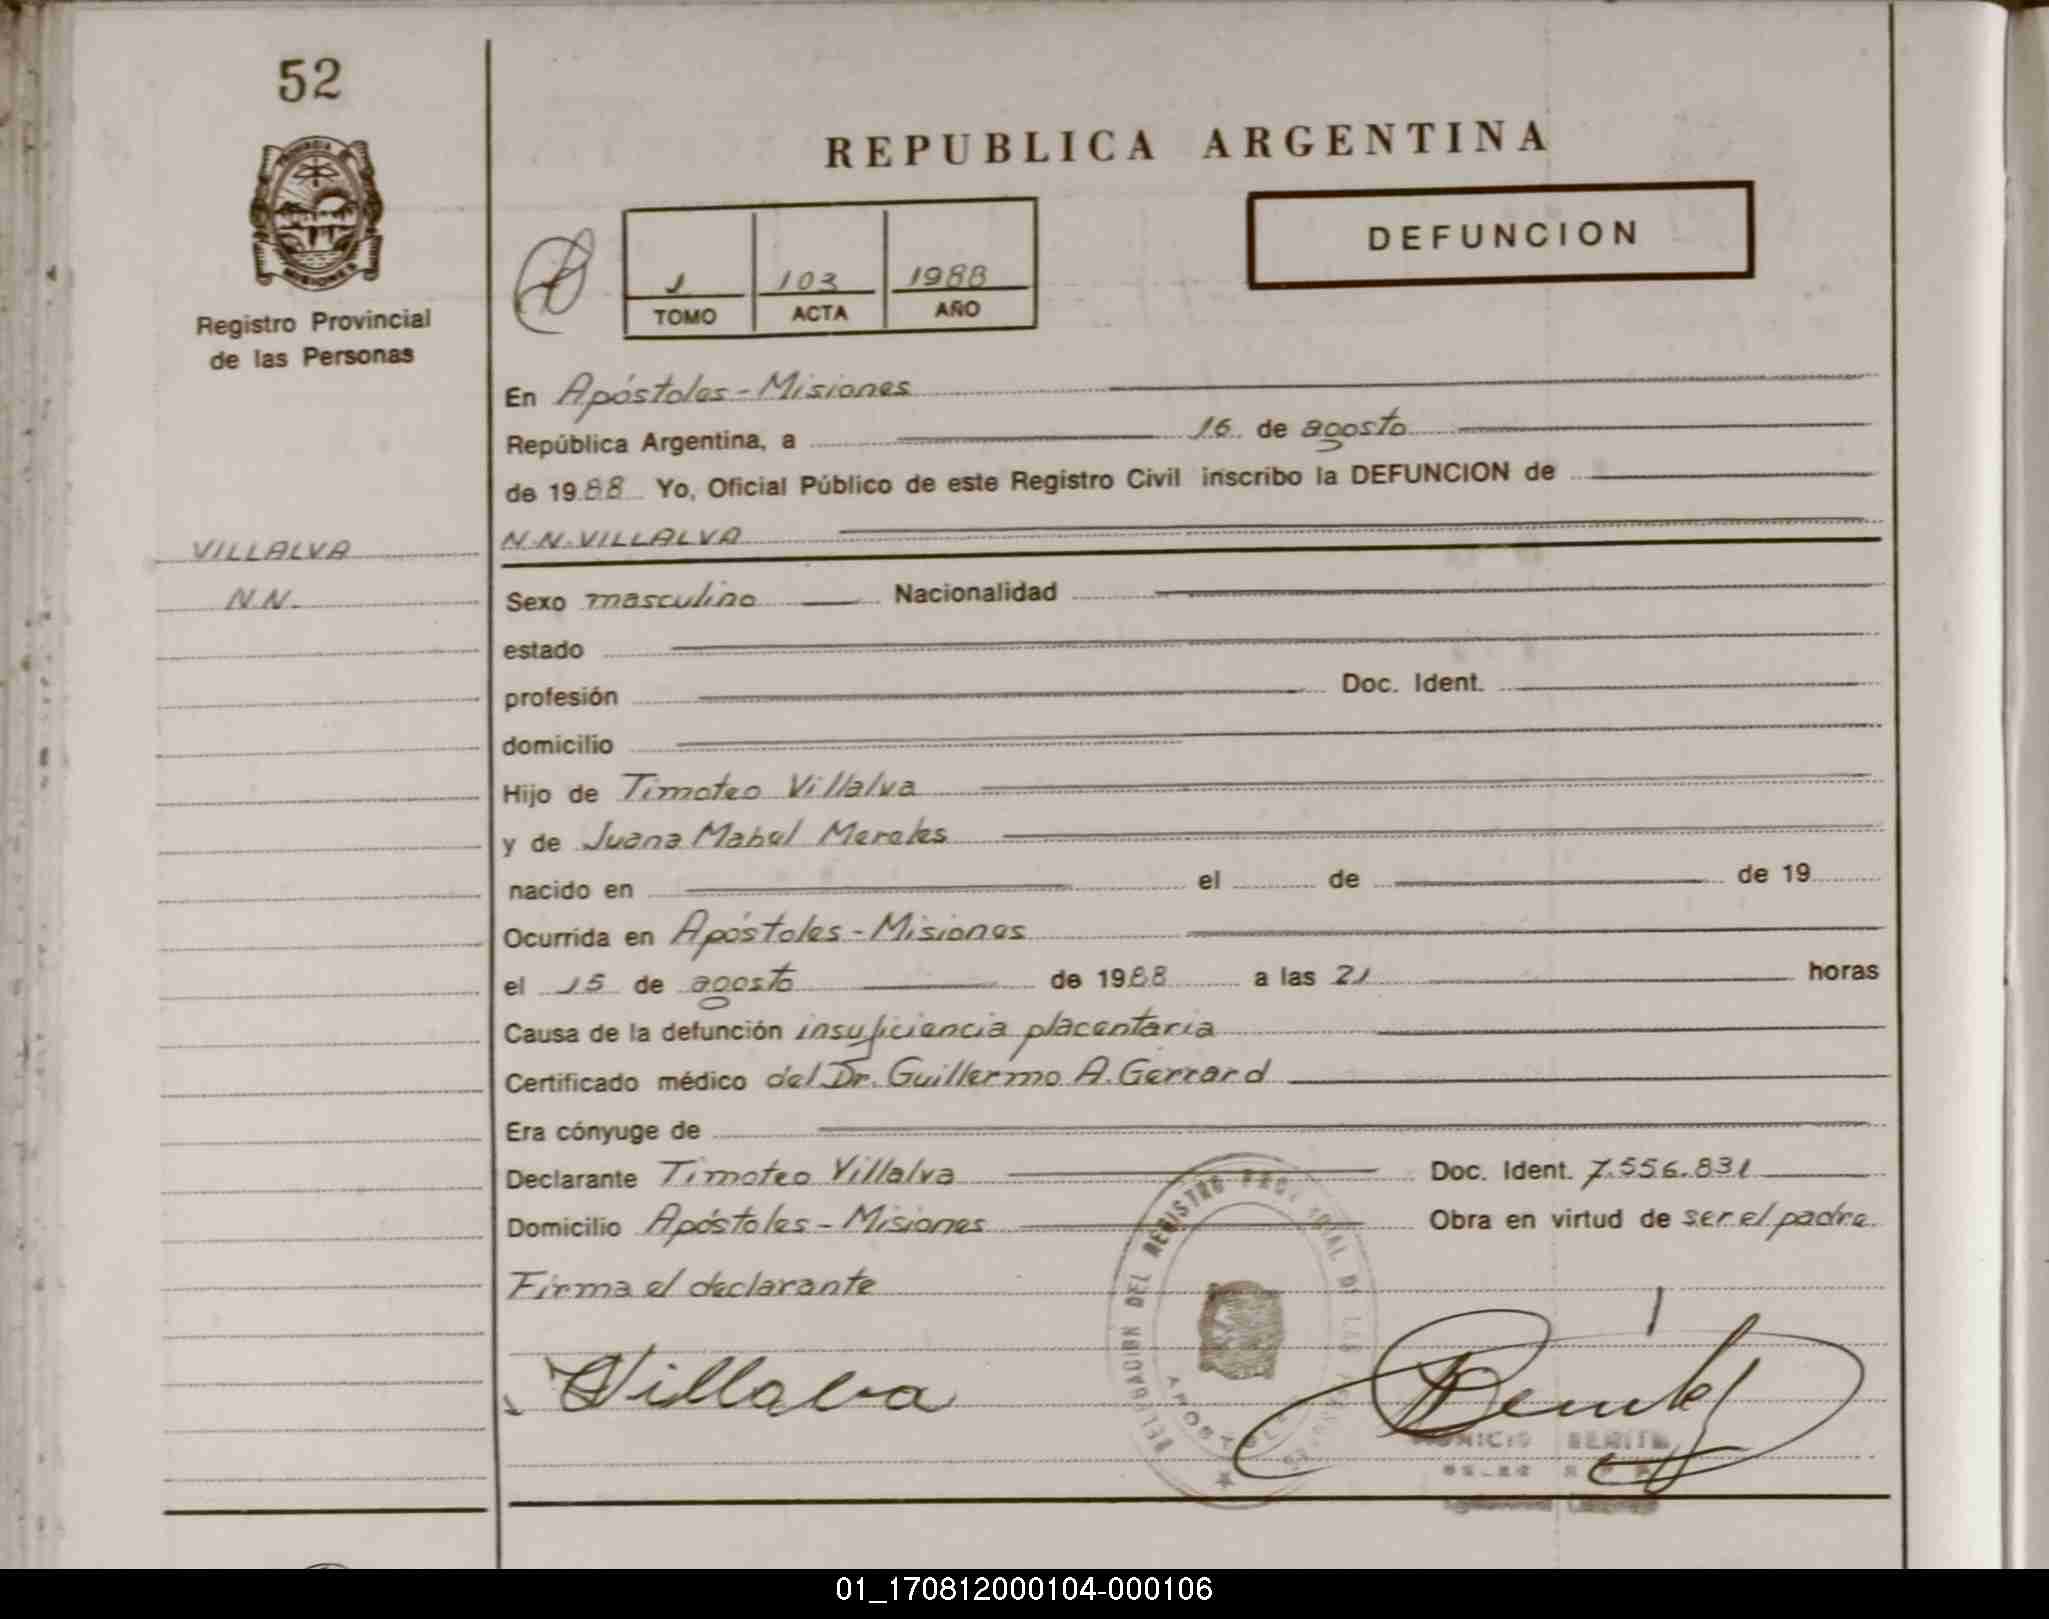 52
REPUBLICA ARGENTINA
PROVINCIA DE
MISIONES
Registro Provincial
de las Personas
1 103 1988
TOMO ACTA AÑO
DEFUNCION
En Apóstoles - Misiones
República Argentina, a 16 de agosto
de 1988 Yo, Oficial Público de este Registro Civil inscribo la DEFUNCION de
VILLALVA
N.N.
N.N. VILLALVA
Sexo masculino Nacionalidad
estado
profesión Doc. Ident.
domicilio
Hijo de Timoteo Villalva
y de Juana Mabel Mereles
nacido en el de de 19
Ocurrida en Apóstoles - Misiones
el 15 de agosto de 1988 a las 21 horas
Causa de la defunción insuficiencia placentaria
Certificado médico del Dr. Guillermo A. Gerrard
Era cónyuge de
Declarante Timoteo Villalva Doc. Ident. 7.556.831
Domicilio Apóstoles - Misiones Obra en virtud de ser el padre
Firma el declarante
Villalva
DELEGACION DEL REGISTRO PROVINCIAL DE LAS PERSONAS
APOSTOLES
BENITEZ
01_170812000104-000106